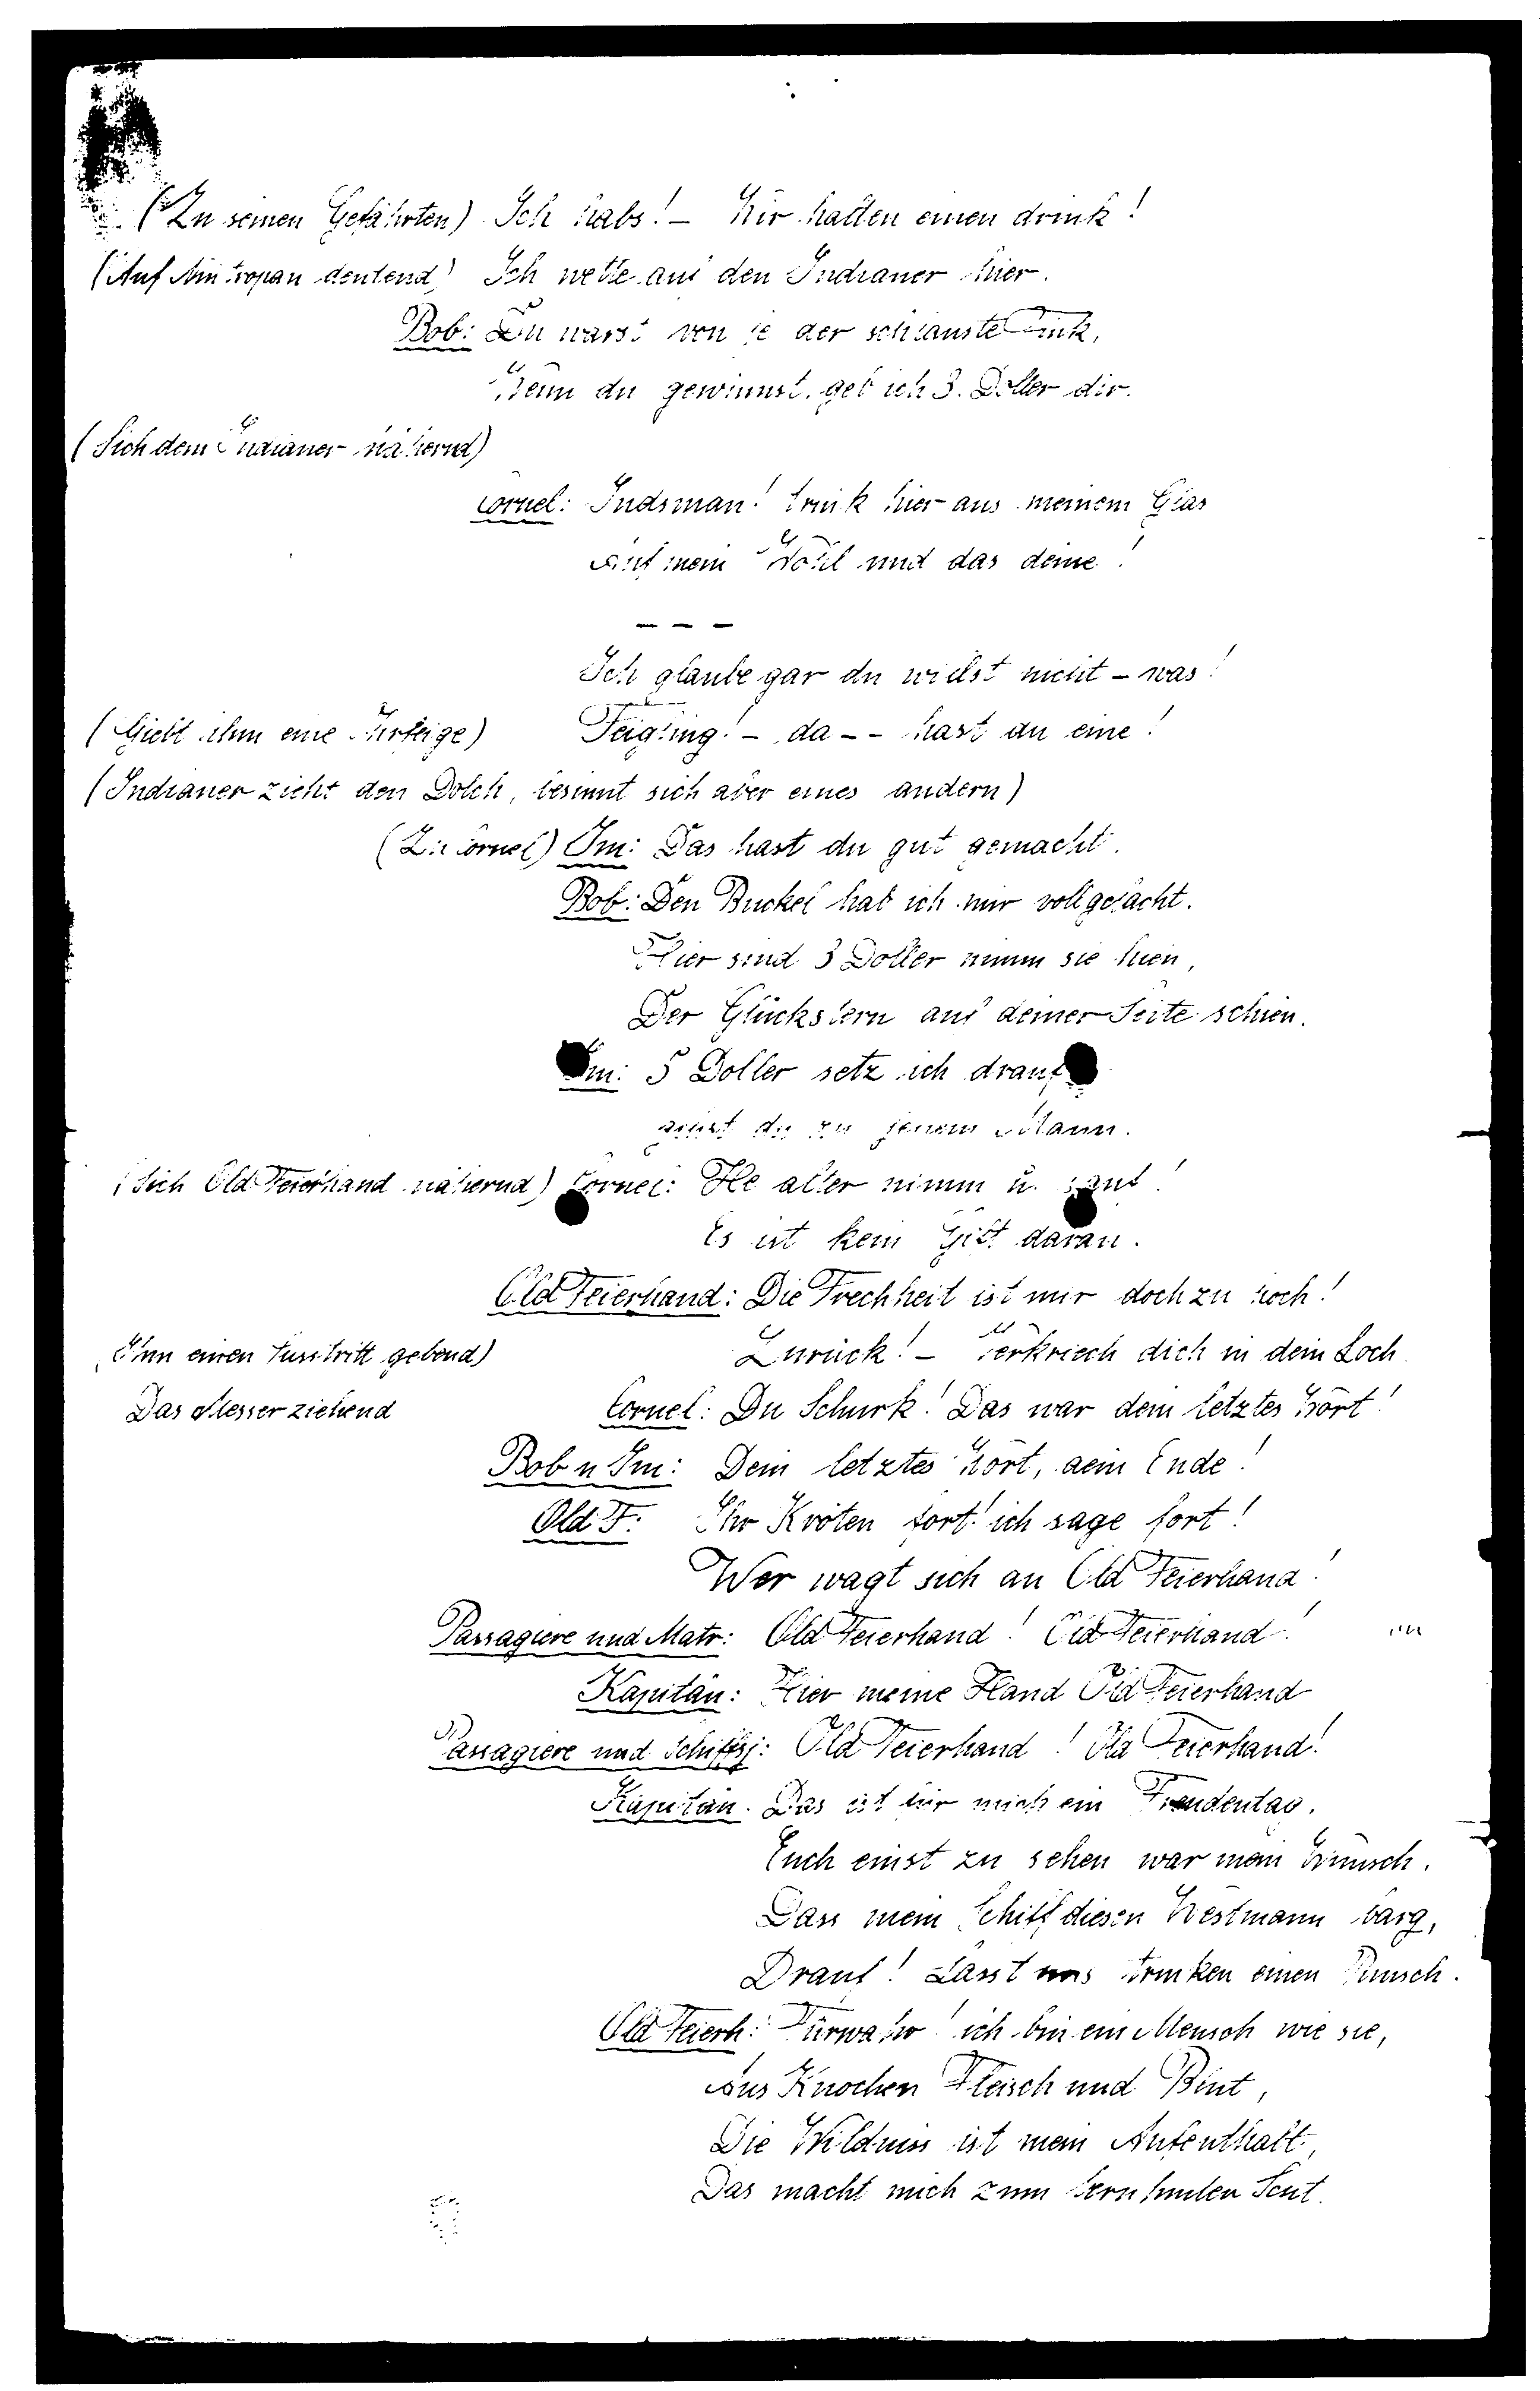 (Zu seinen Gefährten) Ich habs! – Wir halten einen drink!
(Auf Min tropan deutend) Ich wette auf den Indianer hier.
Bob: Du warst von je der schlauste Fink,
Wenn du gewinnst, geb ich 3. Doller dir.
(Sich dem Indianer nähernd)
Cornel: Indsman! trink hier aus meinem Glas
Auf mein Wohl und das deine!
– – –
Ich glaube gar du willst nicht – was!
(Giebt ihm eine Ohrfeige) Feigling! – da – – hast du eine!
(Indianer zieht den Dolch, besinnt sich aber eines andern)
(Zu Cornel) Im: Das hast du gut gemacht.
Bob: Den Buckel hab ich mir voll gelacht.
Hier sind 3 Doller nimm sie hien,
Der Glückstern auf deiner Seite schien.
Im: 5 Doller setz ich drauf
du zu jenem Mann.
(Sich Old Feierhand nähernd) Cornel: He alter nimm u. sauf!
Es ist kein Gift daran.
Old Feierhand: Die Frechheit ist mir doch zu hoch!
(Ihm einen Fusstritt gebend) Zurück! – Verkriech dich in dein Loch.
Das Messer ziehend Cornel: Du Schurk! Das war dein letztes Wort!
Bob u Im: Dein letztes Wort, dein Ende!
Old F: Ihr Kröten fort! ich sage fort!
Wer wagt sich an Old Feierhand!
Passagiere und Matr: Old Feierhand! Old Feierhand!
Kapitän: Hier meine Hand Old Feierhand
Passagiere und Schiffsj: Old Feierhand! Old Feierhand!
Kapitän. Das ist für mich ein Freudentag.
Euch einst zu sehen war mein Wunsch.
Dass mein Schiff diesen Westmann barg,
Drauf! Lasst uns trinken einen Punsch.
Old Feierh: Fürwahr! ich bin ein Mensch wie sie,
Aus Knochen Fleisch und Blut,
Die Wildniss ist mein Aufenthalt,
Das macht mich zum berühmten Scut.